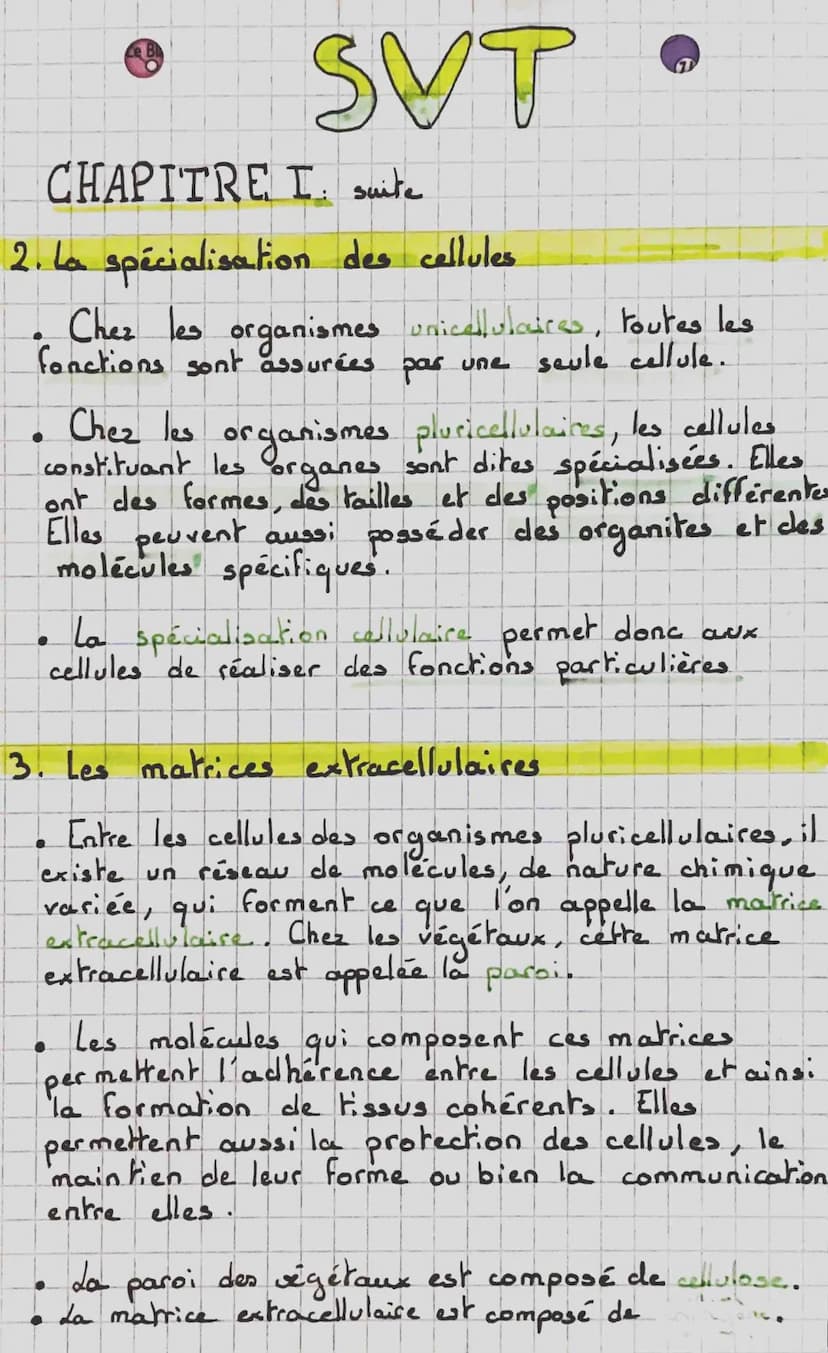 SVT
CHAPITRE I: suite
2. La spécialisation des cellules
• Chez les organismes unicellulaires, toutes les
fonctions sont assurées par une seule cellule.
• Chez les organismes pluricellulaires, les cellules
constituant les organes sont dites spécialisées. Elles
ont des formes, des tailles et des positions différentes
Elles peuvent aussi posséder des organites et des
molécules spécifiques.
• La spécialisation cellulaire permet donc aux
cellules de réaliser des fonctions particulières
3. Les matrices extracellulaires
• Entre les cellules des organismes pluricellulaires, il
existe un réseau de molécules, de nature chimique
variée, qui forment ce que l'on appelle la matrice
extracellulaire. Chez les végétaux, cette matrice
extracellulaire est appelée la paroi.
• Les molécules qui composent ces matrices
permettent l'adhérence entre les cellules et ainsi
la formation de tissus cohérents. Elles
permettent aussi la protection des cellules, le
maintien de leur forme ou bien la communication
entre elles.
• La paroi des végétaux est composé de cellulose.
• La matrice extracellulaire est composé de